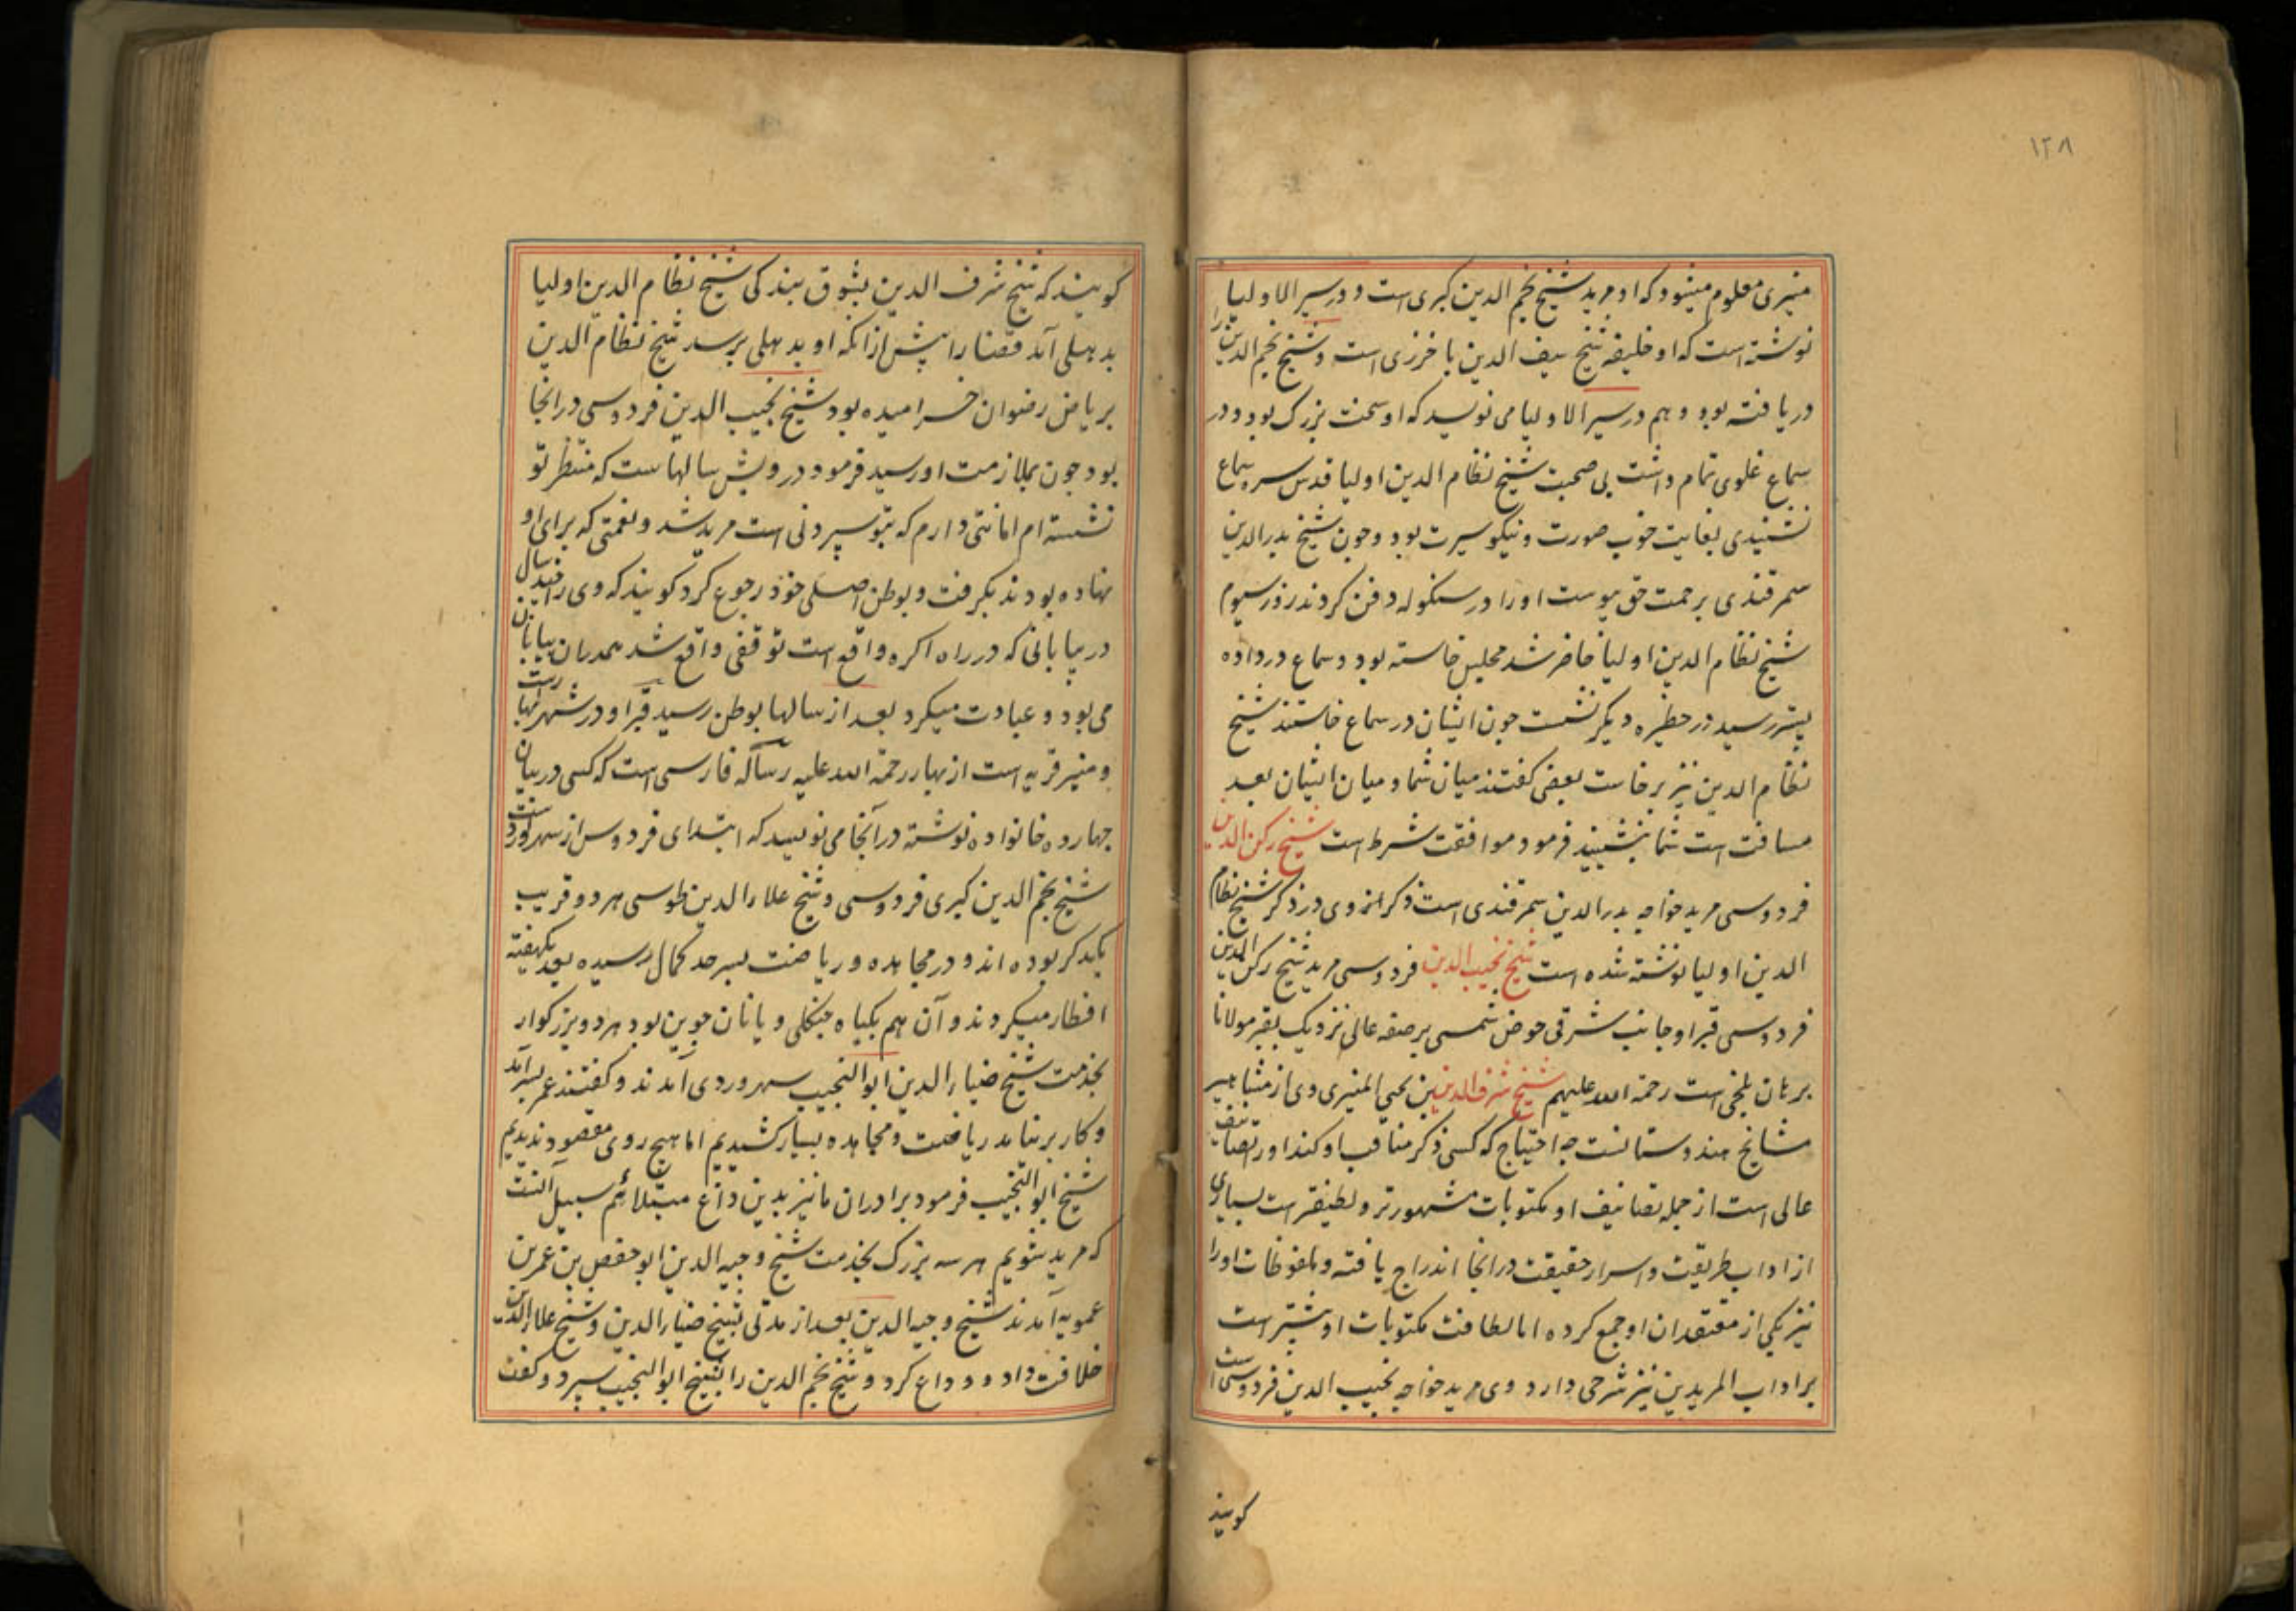 ۱۲۸
منیری معلوم میشود که او مرید شیخ نجم الدین کبری است و در سیر الاولیا
نوشته است که او خلیفه شیخ سیف الدین باخرزی است و شیخ نجم الدین را
دریافته بود و هم در سیر الاولیا می نویسد که او سخت بزرک بود و در
سماع غلوی تمام داشت بی صحبت شیخ نظام الدین اولیا قدس سره سماع
نشنیدی بغایت خوب صورت و نیکو سیرت بود و جون شیخ بدر الدین
سمرقندی برحمت حق پیوست او را در سنکوله دفن کردند روز سیوم
شیخ نظام الدین اولیا حاضر شد مجلس خاسته بود و سماع در داده
بیشتر رسید در حظیره دیکر نشست جون ایشان در سماع خاستند شیخ
نظام الدین نیز برخاست بعضی کفتند میان شما و میان ایشان بعد
مسافت است شما بنشینید فرمود موافقت شرط است شیخ رکن الدین
فردوسی مرید خواجه بدر الدین سمرقندی است ذکر از وی در ذکر شیخ نظام
الدین اولیا نوشته شده است شیخ نجیب الدین فردوسی مرید شیخ رکن الدین
فردوسی قبر او جانب شرقی حوض شمسی بر صفه عالی نزدیک بقبر مولانا
برهان بلخی است رحمة الله علیهم شیخ شرف الدین بن یحیی المنیری وی از مشاهیر
مشایخ هندوستانست چه احتیاج که کسی ذکر مناقب او کند او را تصانیف
عالی است از جمله تصانیف او مکتوبات مشهورتر و لطیفتر است بسیاری
از اداب طریقت و اسرار حقیقت در انجا اندراج یافته و ملفوظات او را
نیز یکی از معتقدان او جمع کرده اما لطافت مکتوبات او بیشتر است
بر اداب المریدین نیز شرحی دارد وی مرید خواجه نجیب الدین فردوسی است
کویند
کویند که شیخ شرف الدین بشوق بندکی شیخ نظام الدین اولیا
بدهلی آمد قضا را پیش از انکه او بدهلی برسد شیخ نظام الدین
بریاض رضوان خرامیده بود شیخ نجیب الدین فردوسی در انجا
بود جون بملازمت او رسید فرمود درویش سالهاست که منتظر تو
نشسته ام امانتی دارم که بتو سپردنی است مرید شد و نعمتی که برای او
نهاده بودند بکرفت و بوطن اصلی خود رجوع کرد کویند که وی را چند سال
در بیابانی که در راه اکره واقع است توقفی واقع شد همدران بیابان
می بود و عبادت میکرد بعد از سالها بوطن رسید قبر او در شهر بهار است
و منیر قریه است از بهار رحمة الله علیه رساله فارسی است که کسی در بیان
جهارده خانواده نوشته در آنجا می نویسد که ابتدای فردوس از سهرورد است
شیخ نجم الدین کبری فردوسی و شیخ علاء الدین طوسی هر دو قریب
یکدکر بوده اند و در مجاهده و ریاضت بسرحد کمال رسیده بعد یکهفته
افطار میکردند و آن هم بکیاه جنکلی و یا نان جوین بود هر دو بزرکوار
بخدمت شیخ ضیاء الدین ابو النجیب سهروردی آمدند و کفتند عمر بسر آمد
و کار برنیامد ریاضت و مجاهده بسیار کشیدیم اما هیچ روی مقصود ندیدیم
شیخ ابو النجیب فرمود برادران ما نیز بدین داغ مبتلائیم سبیل آنست
که مرید شویم هر سه بزرک بخدمت شیخ وجیه الدین ابو حفص بن عمر بن
عمویه آمدند شیخ وجیه الدین بعد از مدتی شیخ ضیاء الدین و شیخ علاء الدین
خلافت داد و وداع کرد و شیخ نجم الدین را بشیخ ابو النجیب سپرد و کفت